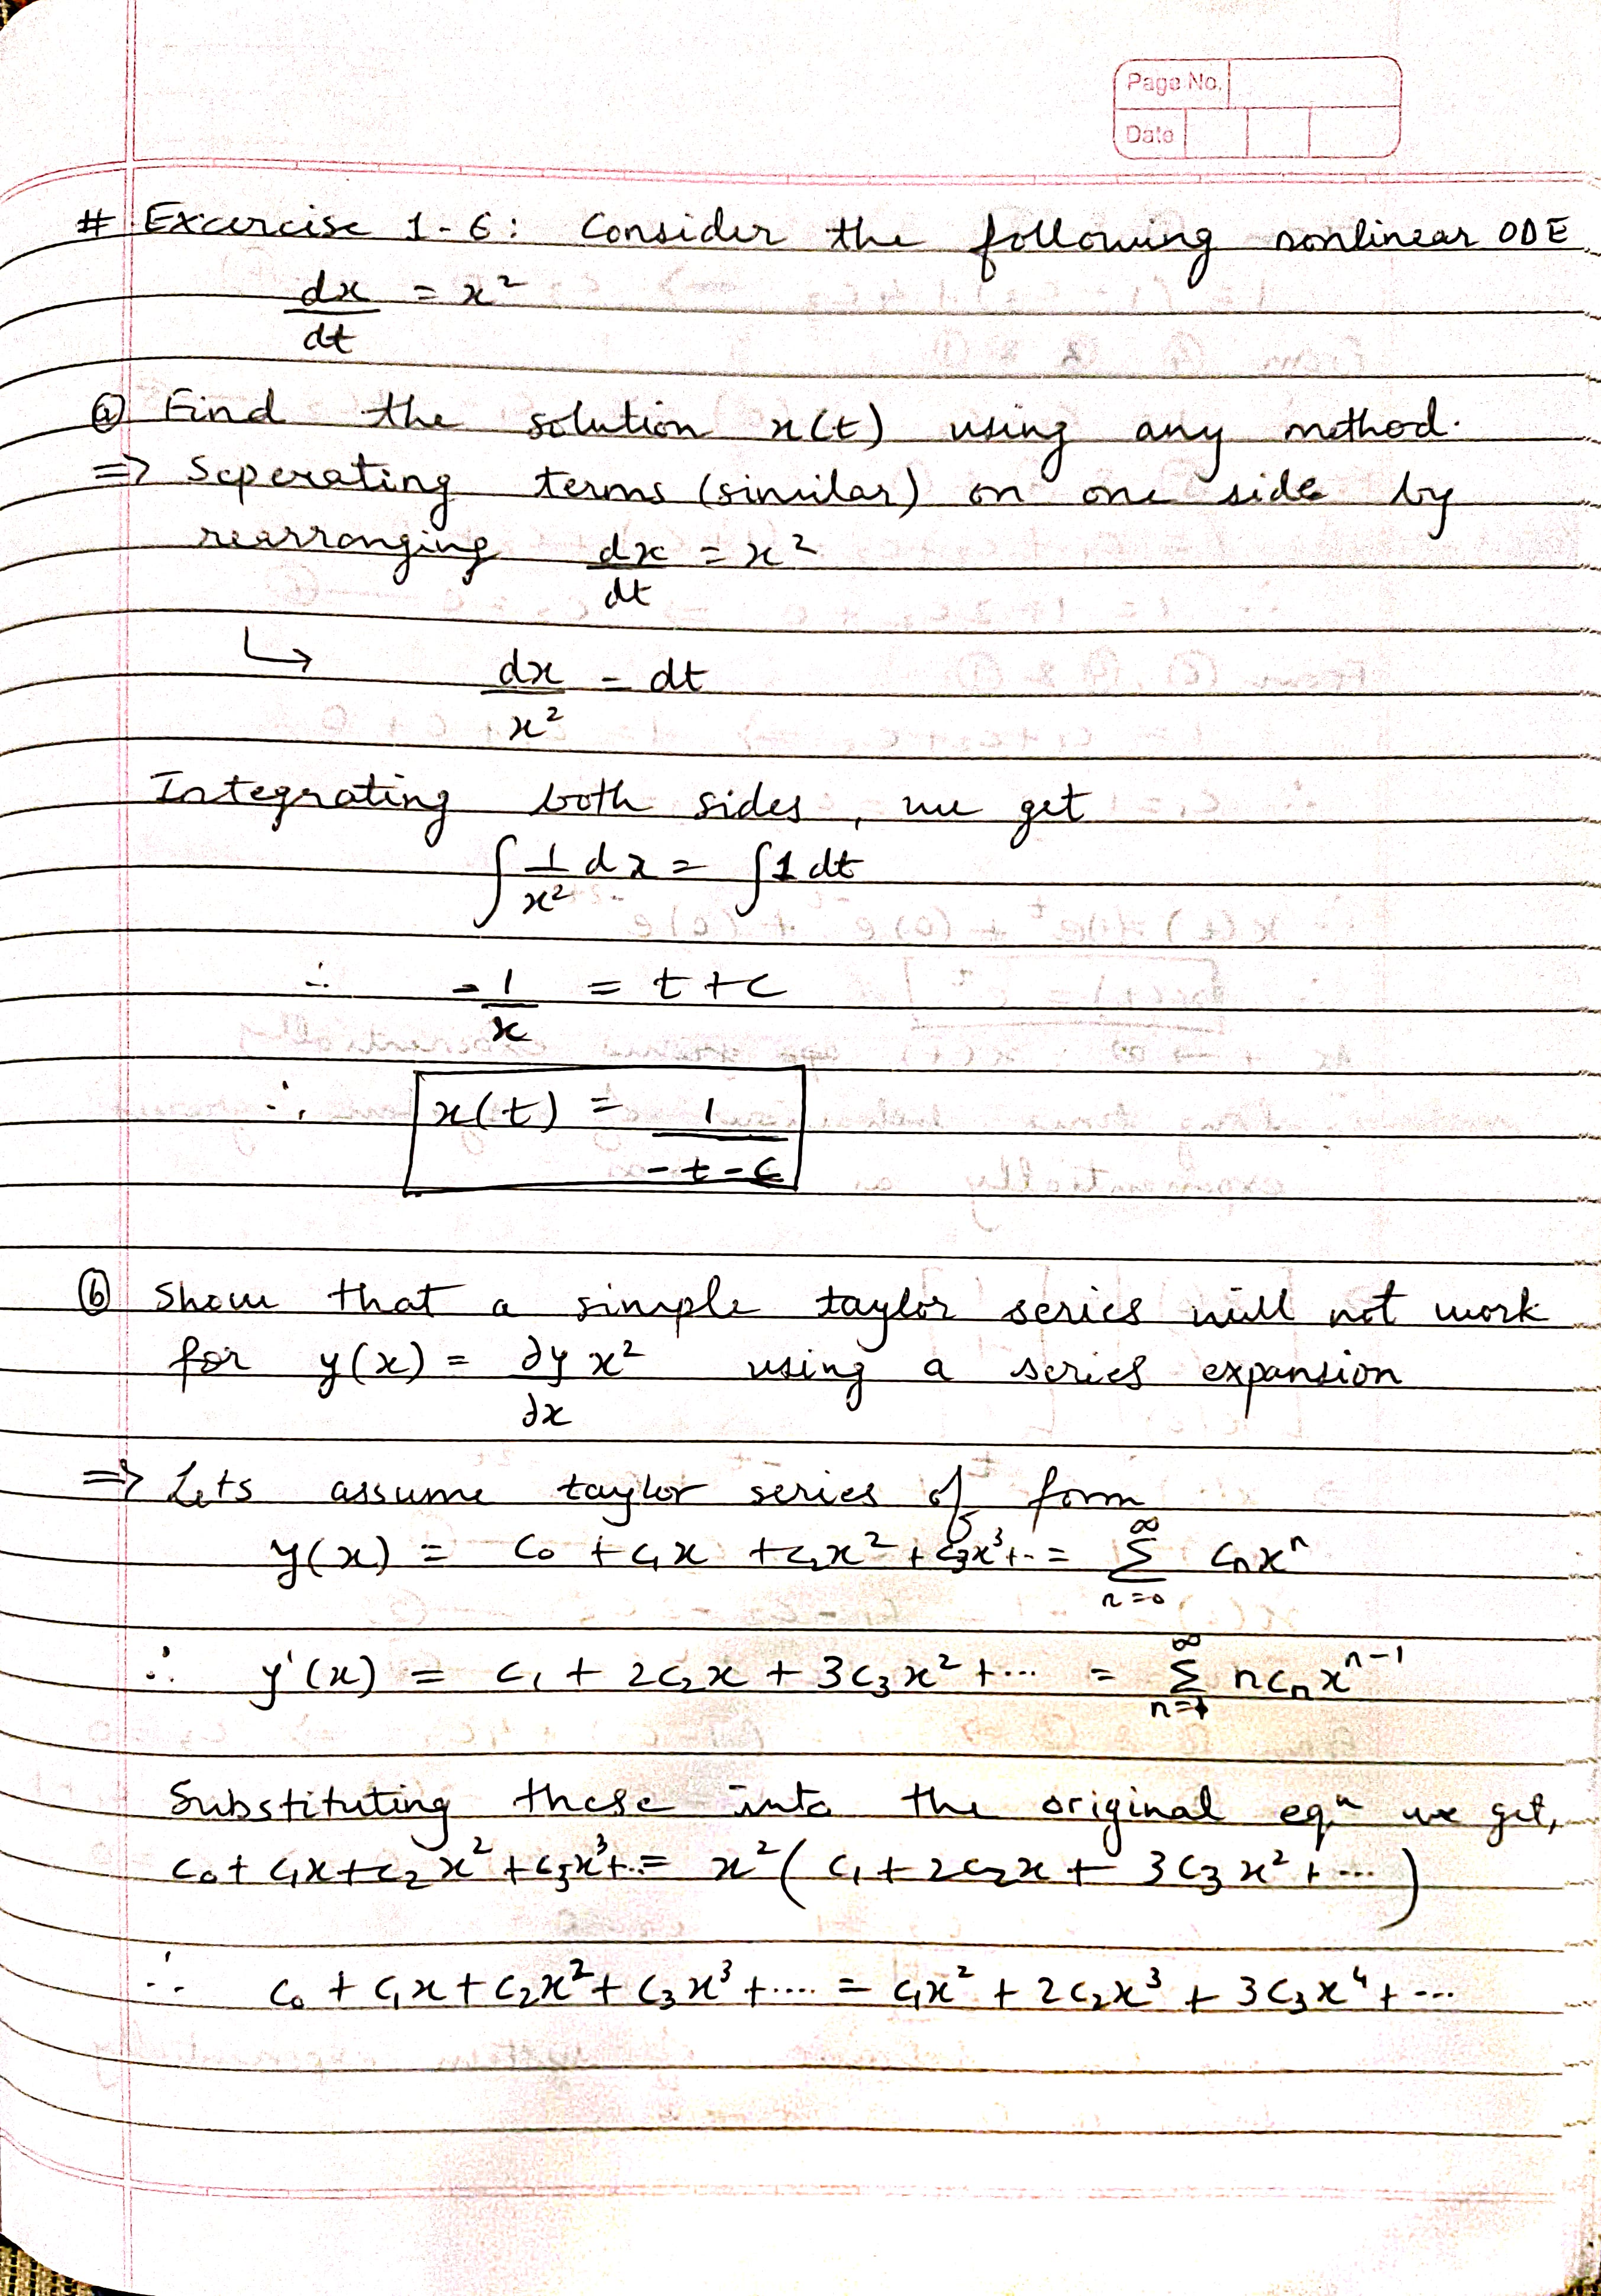 Page No.
Date
# Excercise 1-6: Consider the following nonlinear ODE
dx/dt = x²
ⓐ Find the solution x(t) using any method.
=> Seperating terms (similar) on one side by
rearranging dx/dt = x²
↳ dx/x² = dt
Integrating both sides, we get
∫ 1/x² dx = ∫ 1 dt
∴ -1/x = t + c
∴ x(t) = 1/(-t-c)
ⓑ Show that a simple taylor series will not work
for y(x) = ∂y/∂x x² using a series expansion
=> Lets assume taylor series of form
y(x) = c₀ + c₁x + c₂x² + c₃x³+.. = ∑_{n=0}^{∞} cₙxⁿ
∴ y'(x) = c₁ + 2c₂x + 3c₃x² + ... = ∑_{n=1}^{∞} ncₙxⁿ⁻¹
Substituting these into the original eqⁿ we get,
c₀ + c₁x + c₂x² + c₃x³+.. = x²(c₁ + 2c₂x + 3c₃x² + ...)
∴ c₀ + c₁x + c₂x² + c₃x³ + .... = c₁x² + 2c₂x³ + 3c₃x⁴ + ...